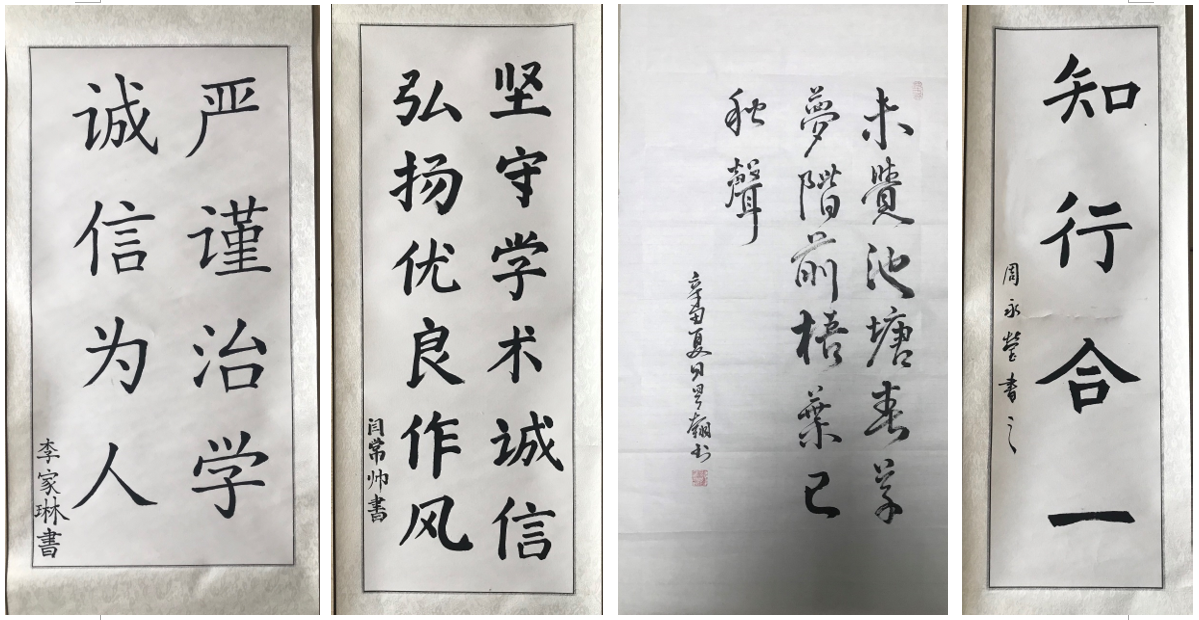 严谨治学
诚信为人
李家琳書
坚守学术诚信
弘扬优良作风
闫常帅書
未覺池塘春草
夢階前梧葉已
秋聲
辛丑夏日昱翺书
知行合一
周永莹書之